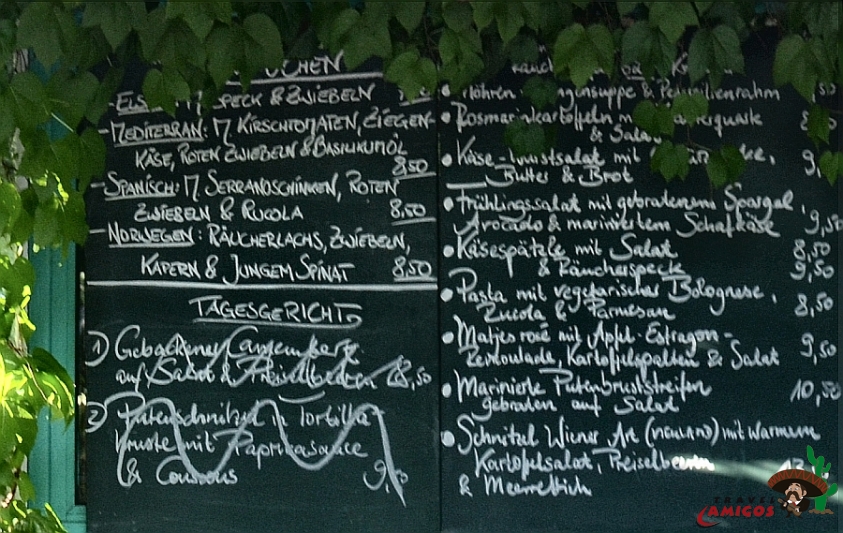 SPECK & ZWIEBELN
- MEDITERRAN: M. KIRSCHTOMATEN, ZIEGEN-
KÄSE, ROTEN ZWIEBELN & BASILIKUMÖL
8,50
- SPANISCH: M SERRANOSCHINKEN, ROTEN
ZWIEBELN & RUCOLA 8,50
- NORWEGEN: RÄUCHERLACHS, ZWIEBELN,
KAPERN & JUNGEM SPINAT 8,50
TAGESGERICHT
1) Gebackener Camembert
auf Salat & Preiselbeeren 8,50
2) Putenschnitzel in Tortilla-
kruste mit Paprikasauce
& Couscous
& Petersilienrahm
• Rosmarinkartoffeln
& Salat
• Käse-Wurstsalat mit
Butter & Brot
• Frühlingssalat mit gebratenem Spargel,
Avocado & mariniertem Schafkäse 9,50
• Käsespätzle mit Salat 8,50
& Räucherspeck 9,50
• Pasta mit vegetarischer Bolognese,
Rucola & Parmesan 8,50
• Matjes rosé mit Apfel-Estragon-
Remoulade, Kartoffelspalten & Salat 9,50
• Marinierte Putenbruststreifen 10,50
gebraten auf Salat
• Schnitzel Wiener Art (NEULAND) mit warmem
Kartoffelsalat, Preiselbeeren
& Meerrettich
TRAVEL
AMIGOS